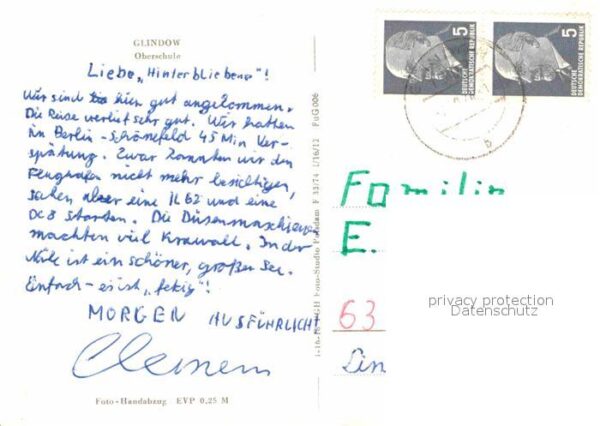 GLINDOW
Oberschule
Liebe „Hinterbliebene"!
Wir sind hier gut angekommen.
Die Reise verlief sehr gut. Wir hatten
in Berlin-Schönefeld 45 Min Ver-
spätung. Zwar konnten wir den
Flughafen nicht mehr besichtigen,
sahen aber eine IL 62 und eine
DC 8 starten. Die Düsenmaschinen
machten viel Krawall. In der
Nähe ist ein schöner, großer See.
Einfach - es ist „fetzig"!
MORGEN AUSFÜHRLICH
Clemens
Foto-Handabzug EVP 0,25 M
Foto-Studio Potsdam F 33/74 I/16/12 FuG 006
5
DEUTSCHE
DEMOKRATISCHE REPUBLIK
5
DEUTSCHE
DEMOKRATISCHE REPUBLIK
Familie
E.
63
privacy protection
Datenschutz